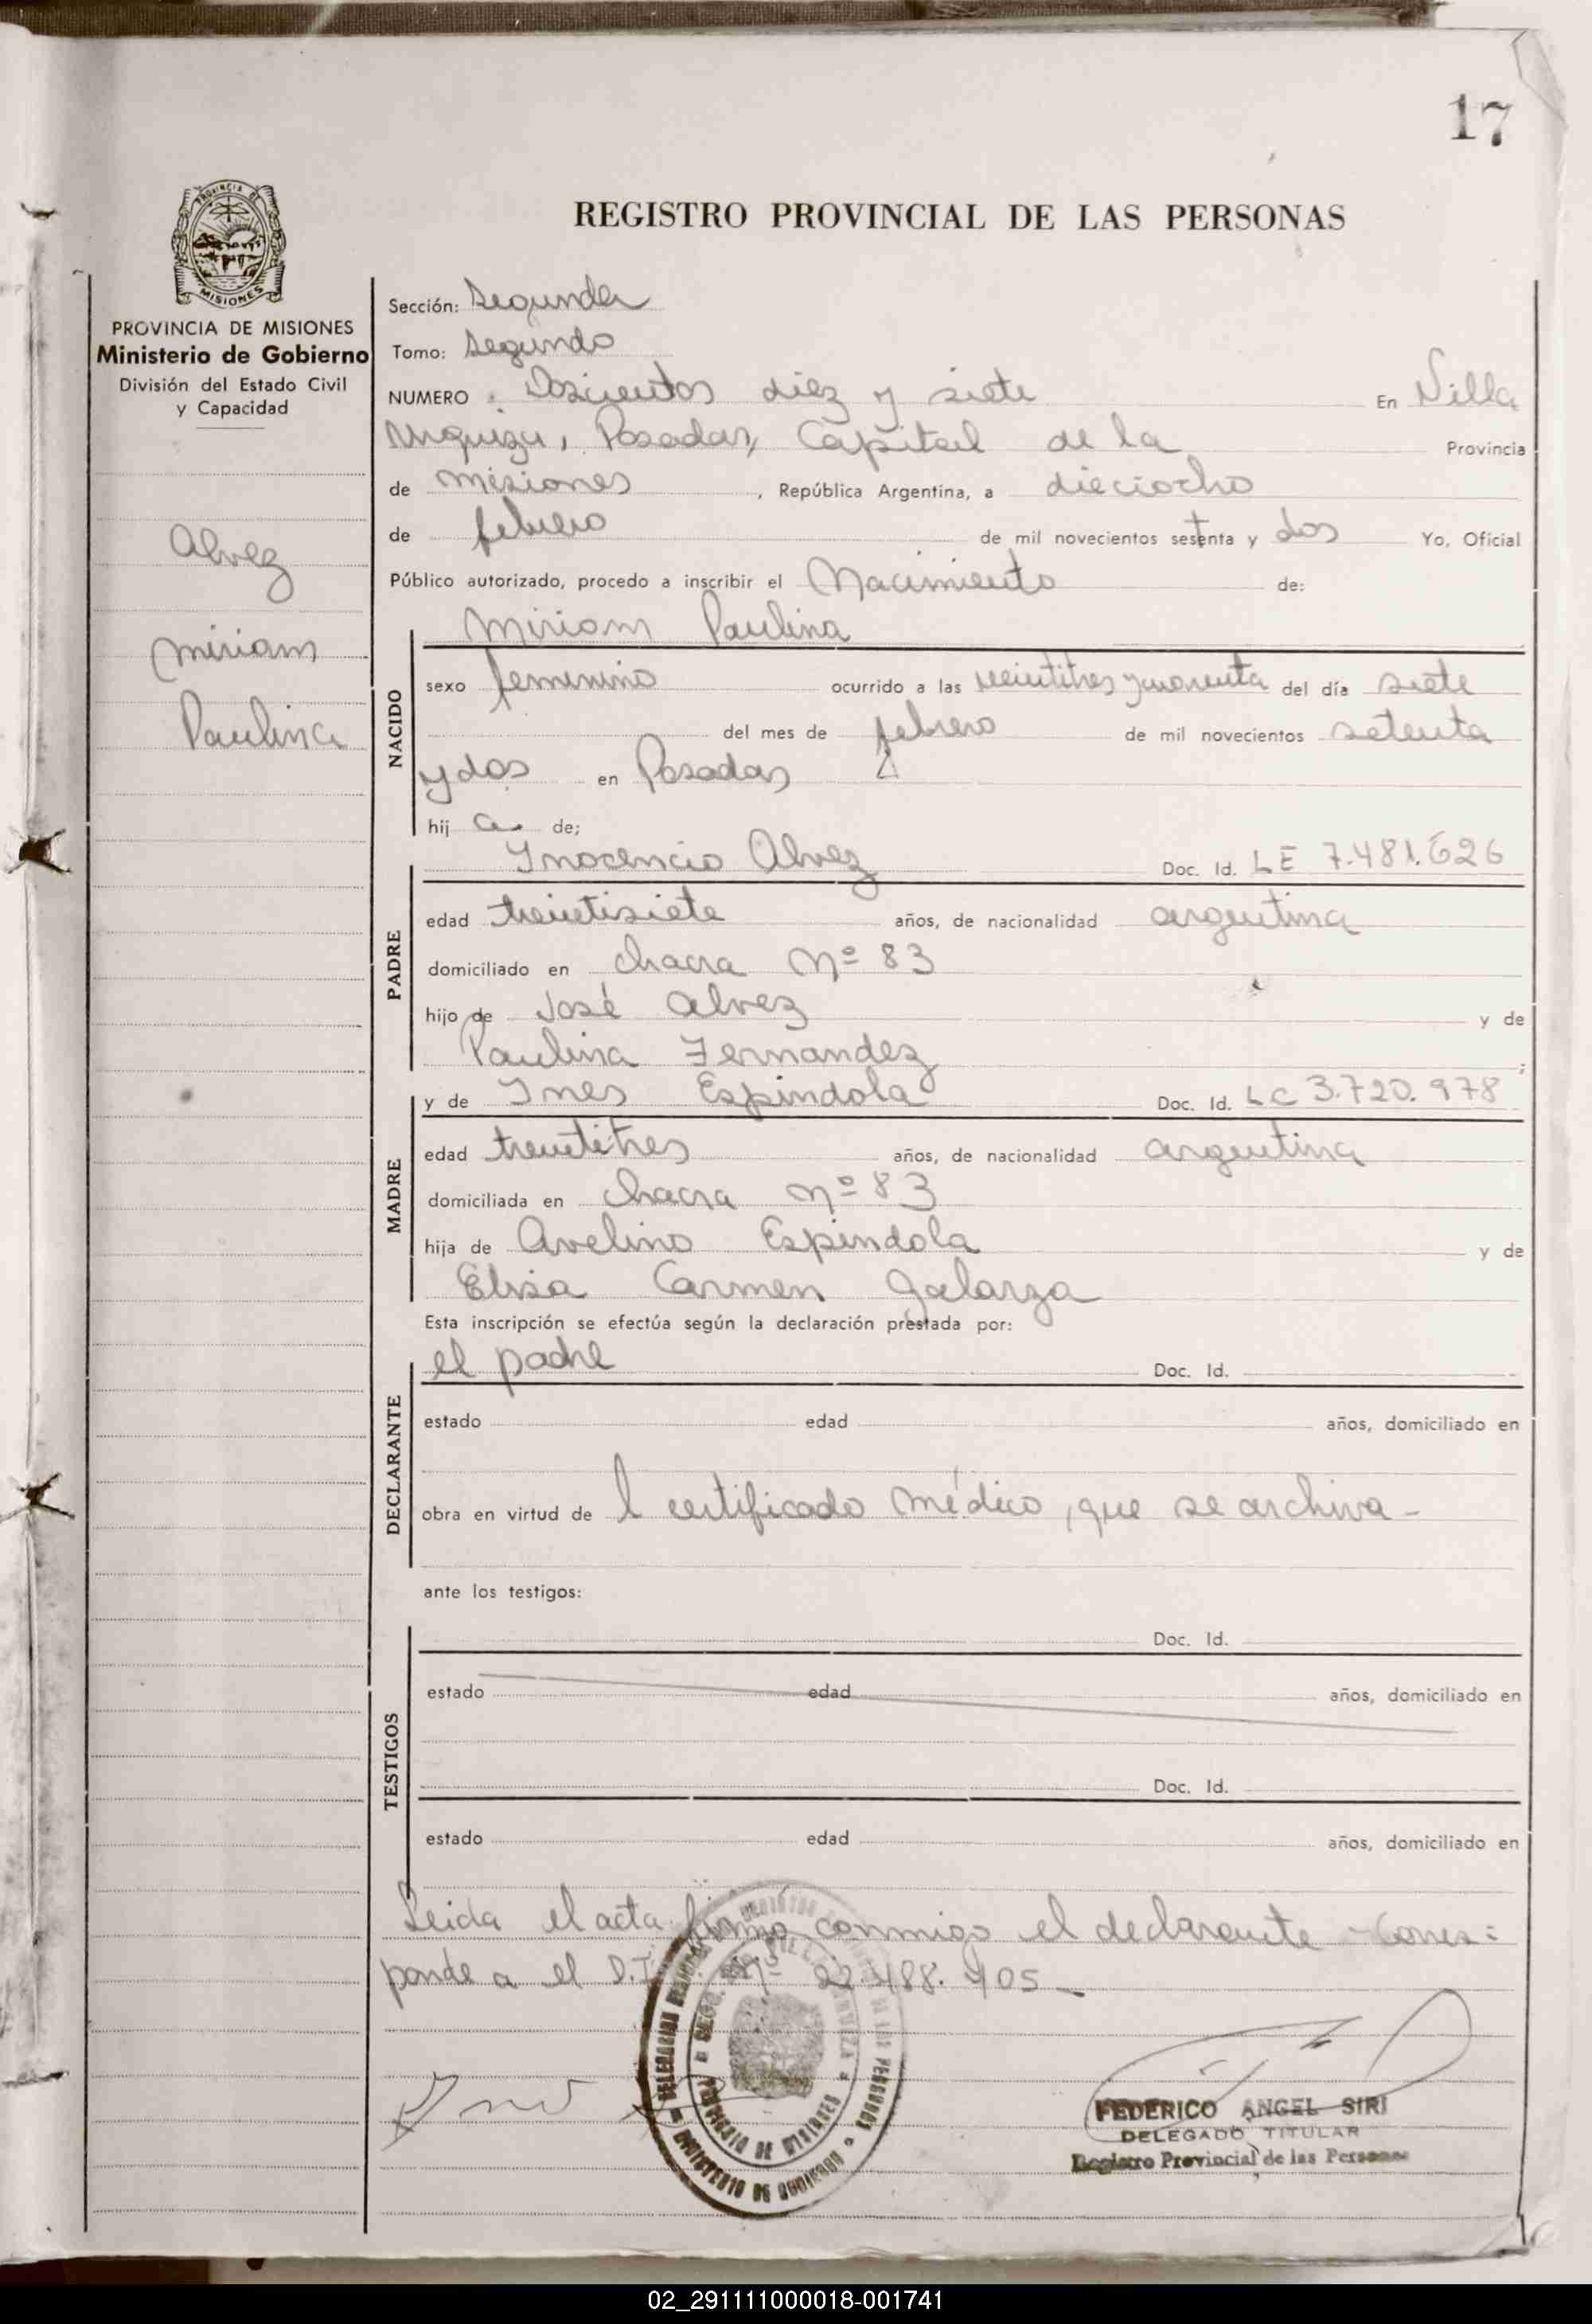 17
PROVINCIA DE
MISIONES
REGISTRO PROVINCIAL DE LAS PERSONAS
PROVINCIA DE MISIONES
Ministerio de Gobierno
División del Estado Civil
y Capacidad
Alvez
Miriam
Paulina
Sección: Segunda
Tomo: Segundo
NUMERO : Doscientos diez y siete En Villa
Urquiza, Posadas, Capital de la Provincia
de Misiones , República Argentina, a dieciocho
de febrero de mil novecientos setenta y dos Yo, Oficial
Público autorizado, procedo a inscribir el Nacimiento de:
NACIDO
Miriam Paulina
sexo femenino ocurrido a las veintitres y cuarenta del día siete
del mes de febrero de mil novecientos setenta
y dos en Posadas
hij a de;
PADRE
Inocencio Alvez Doc. Id. LE 7.481.626
edad treintisiete años, de nacionalidad argentina
domiciliado en chacra Nº 83
hijo de José Alvez y de
Paulina Fernandez ;
MADRE
y de Ines Espindola Doc. Id. LC 3.720.978
edad treintitres años, de nacionalidad argentina
domiciliada en chacra nº 83
hija de Avelino Espindola y de
Elisa Carmen Galarza
Esta inscripción se efectúa según la declaración prestada por:
DECLARANTE
el padre Doc. Id.
estado edad años, domiciliado en
obra en virtud de l certificado médico, que se archiva -
ante los testigos:
TESTIGOS
Doc. Id.
estado edad años, domiciliado en
Doc. Id.
estado edad años, domiciliado en
Leida el acta firma conmigo el declarante - Corres=
ponde a el D.I. Nº 22.488.405 -
PROVINCIA DE MISIONES
MINISTERIO DE GOBIERNO
FEDERICO ANGEL SIRI
DELEGADO TITULAR
Registro Provincial de las Personas
02_291111000018-001741